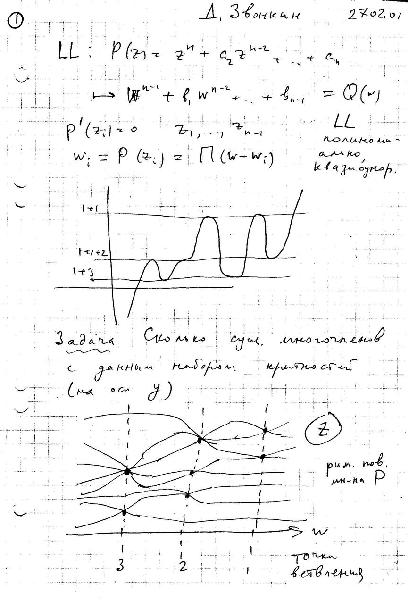 ① Д. Звонкин 27.02.01
LL: P(z) = zⁿ + a₂zⁿ⁻² + ... + aₙ
↦ wⁿ⁻¹ + b₁wⁿ⁻² + ... + bₙ₋₁ = Q(w)
P'(zᵢ)=0 z₁, ..., zₙ₋₁
LL
полиноми-
ально,
квазиоднор.
wᵢ = P(zᵢ) = Π(w-wᵢ)
1+1
1+1+2
1+3
Задача Сколько сущ. многочленов
с данным набором кратностей
(на оси y)
z
рим. пов.
мн-на P
w
3 2 1
точки
ветвления